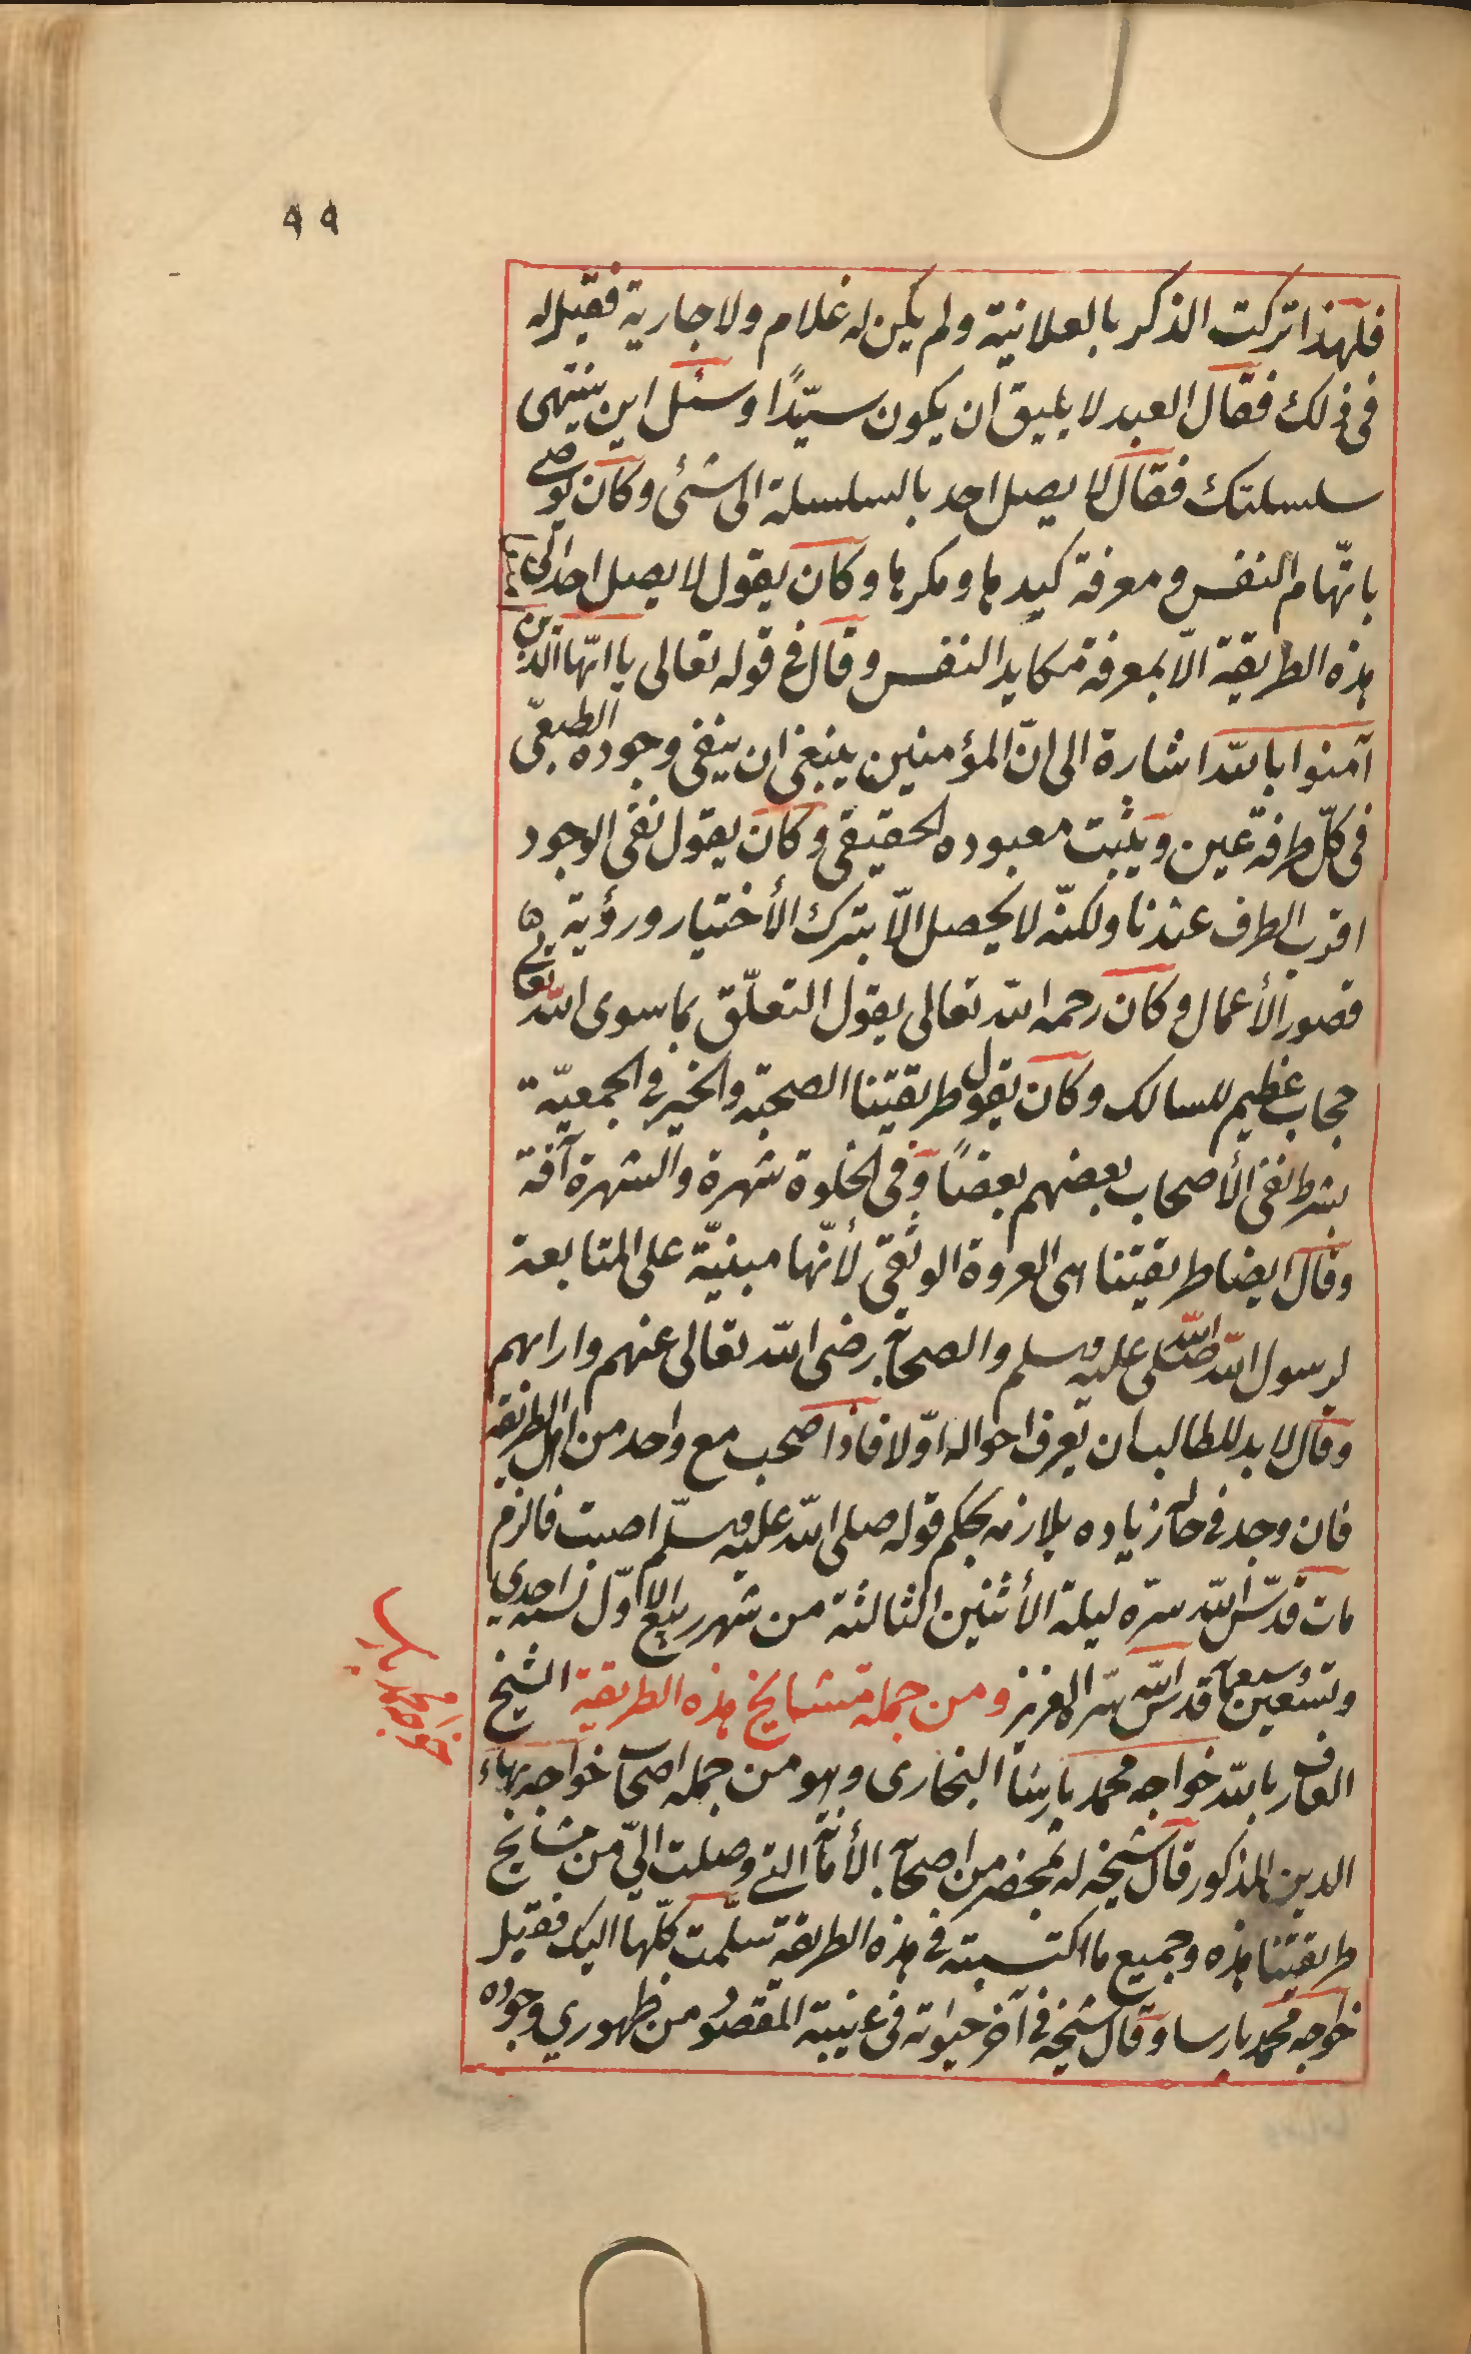 ٩٩
فلهذا تركت الذكر بالعلانية ولم يكن له غلام ولا جارية فقيل له
فى ذلك فقال العبد لا يليق ان يكون سيّدًا وسئل اين ينتهى
سلسلتك فقال لا يصل احد بالسلسلة الى شئ وكان يوصى
باتّهام النفس ومعرفة كيدها ومكرها وكان يقول لا يصل احد الى
هذه الطريقة الّا بمعرفة مكايد النفس وقال فى قوله تعالى يا ايّها الذين
آمنوا بالله اشارة الى انّ المؤمنين ينبغى ان ينفى وجوده الطبيعىّ
فى كلّ طرفة عين ويثبت معبوده الحقيقى وكان يقول نفى الوجود
اقرب الطرف عندنا ولكنّه لا يحصل الّا بترك الأختيار ورؤية
قصور الأعمال وكان رحمه الله تعالى يقول التعلّق بما سوى الله تعالى
حجاب عظيم للسالك وكان يقول طريقتنا الصحبة والخير فى الجمعيّة
بشرط نفى الأصحاب بعضهم بعضًا وفى الخلوة شهرة والشهرة آفة
وقال ايضا طريقتنا هى العروة الوثقى لأنّها مبنيّة على المتابعة
لرسول الله صلى الله عليه وسلم والصحابة رضى الله تعالى عنهم واراهم
وقال لا بد للطالب ان يعرف احواله اوّلا فاذا صحب مع واحد من اهل الطريقة
فان وجد فى حاله زياده يلازمه بحكم قوله صلى الله عليه وسلّم اصبت فالزم
مات قدّس الله سرّه ليلة الأثنين الثالثة من شهر ربيع الاوّل لسنه احدى
وتسعين سبعمأة قدس الله سرّه العزيز ومن جملة مشايخ هذه الطريقة الشيخ
العارف بالله خواجه محمد پارسا البخارى وهو من جمله اصحاب خواجه بهاء
الدين المذكور قال شيخه له بمحضر من اصحابه الأمانة التى وصلت الىّ من مشايخ
طريقتنا هذه وجميع ما اكتسبته فى هذه الطريقة سلّمت كلّها اليك فقيل
خواجه محمد پارسا وقال شيخه فى آخر حيوته فى غيبته المقصود من ظهورى وجوده
خواجه محمد پارسا